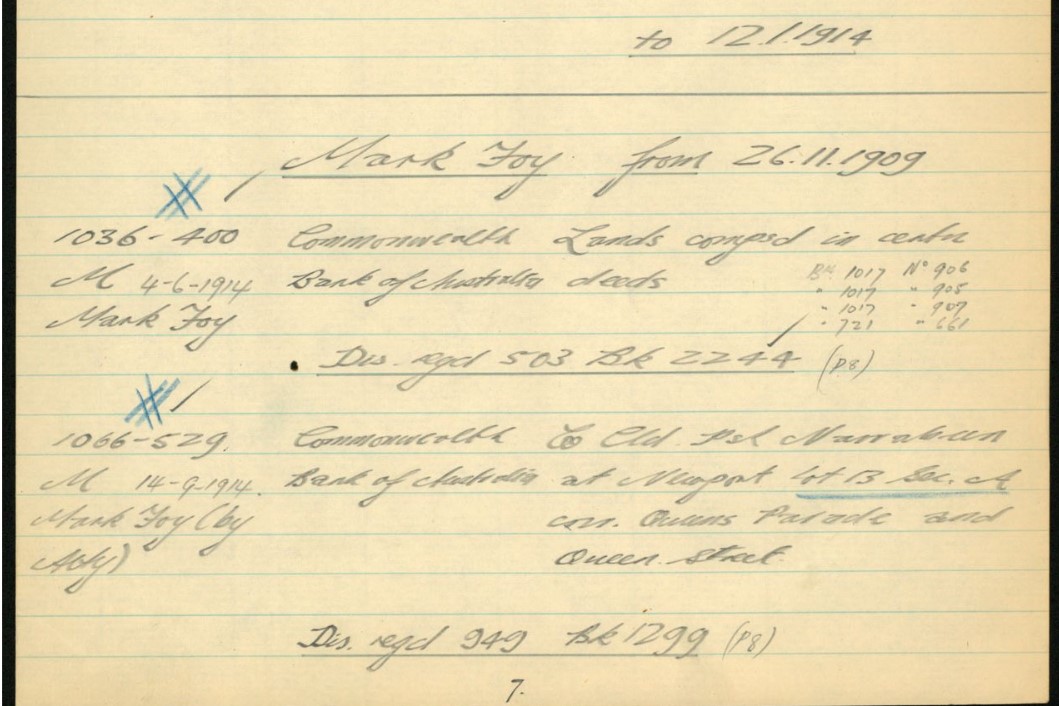 to 12.1.1914
Mark Foy from 26.11.1909
1036-400 Commonwealth Lands compsd in certn
M 4-6-1914 Bank of Australia deeds Bk 1017 No 906
" 1017 " 905
Mark Foy " 1017 " 907
" 721 " 661
Dis. regd 503 Bk 2244 (P8)
1066-529. Commonwealth Co Cld. Psh Narrabeen
M 14-9-1914. Bank of Australia at Newport Lot 13 Sec. A
Mark Foy (by corr. Queens Parade and
Atty) Queen Street.
Dis. regd 949 Bk 1299 (P8)
7.